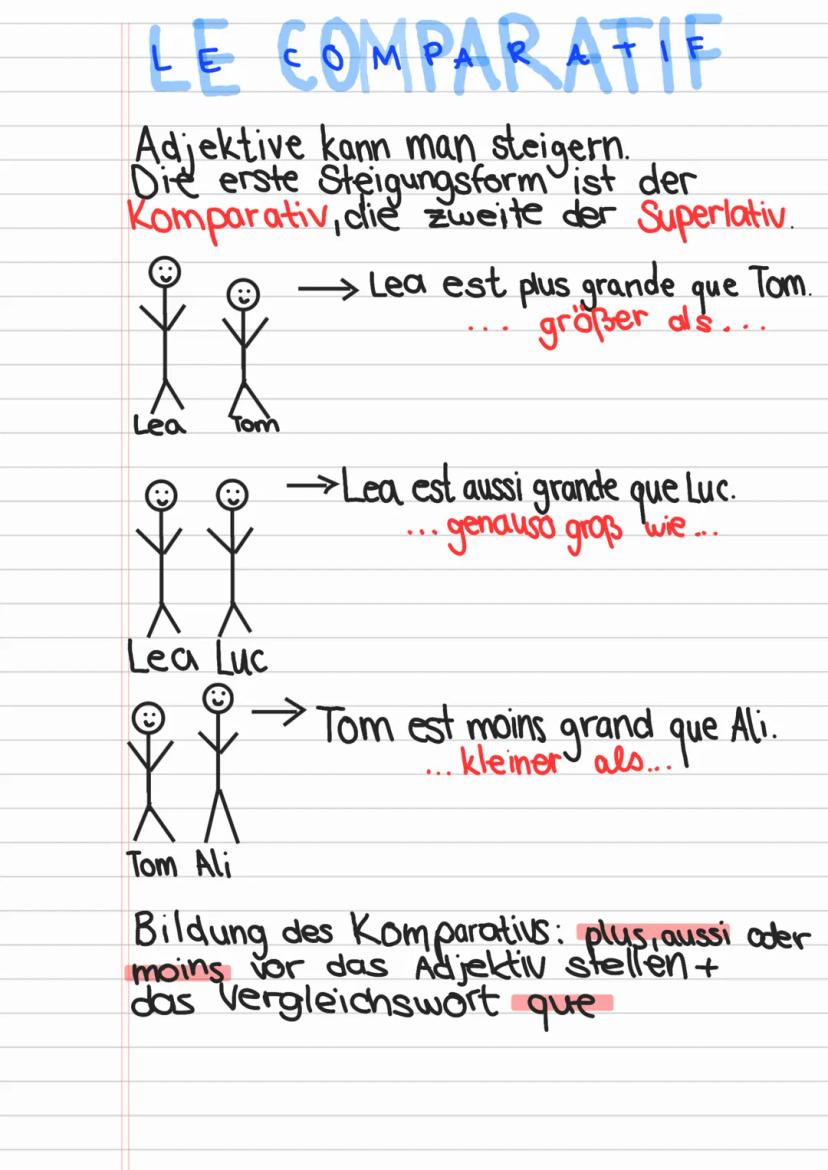 LE COMPARATIF
Adjektive kann man steigern.
Die erste Steigungsform ist der
Komparativ, die zweite der Superlativ.
→ Lea est plus grande que Tom.
... größer als...
Lea Tom
→ Lea est aussi grande que Luc.
... genauso groß wie...
Lea Luc
→ Tom est moins grand que Ali.
... kleiner als...
Tom Ali
Bildung des Komparativs: plus, aussi oder
moins vor das Adjektiv stellen +
das Vergleichswort que